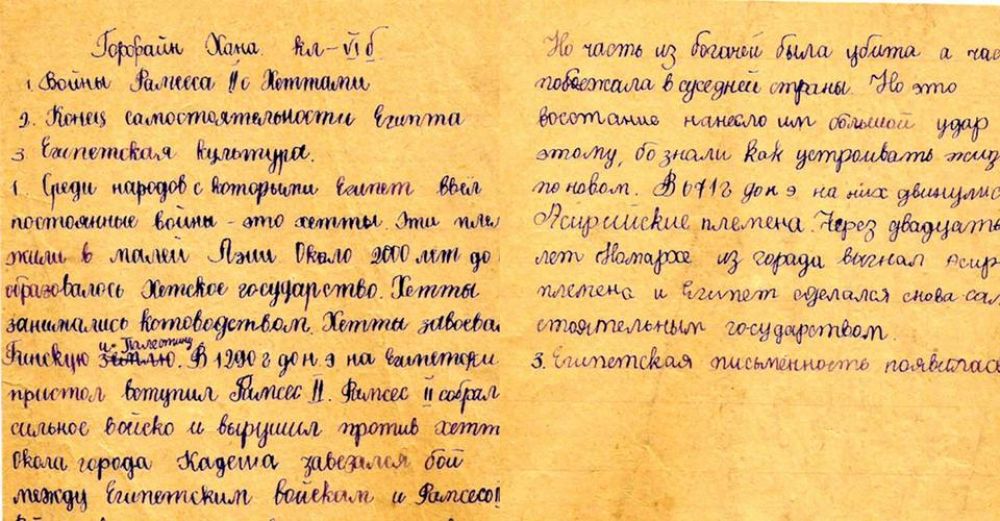 Горфайн Хана. кл-VI б
1. Войны Рамсеса II с Хеттами
2. Конец самостоятельности Египта
3. Египетская культура.
1. Среди народов с которыми Египет ввёл
постоянные войны - это хетты. Эти пле
жили в малей Азии. Около 2000 лет до
образовалось Хетское государство. Хетты
занимались котоводством. Хетты завоева
и Палестину
Финскую землю. В 1290 г до н. э на Египетски
пристол вступил Рамсес II. Рамсес II собрал
сильное войско и вырушил против хетт
Окала города Кадеша завезался бой
между Египетским войскам и Рамсесо
Но часть из богачей была убита а час
побоежала в суседней страны. Но это
восстание нанесло им большой удар
этому, бо знали как устроивать жиз
по новом. В 671 г до н э на них двинулис
Асирийские племена. Через двадцать
лет Номархе из города выгнал Асир
племена и Египет сделался снова сам
стоятельным государством.
3. Египетская письменность появилас